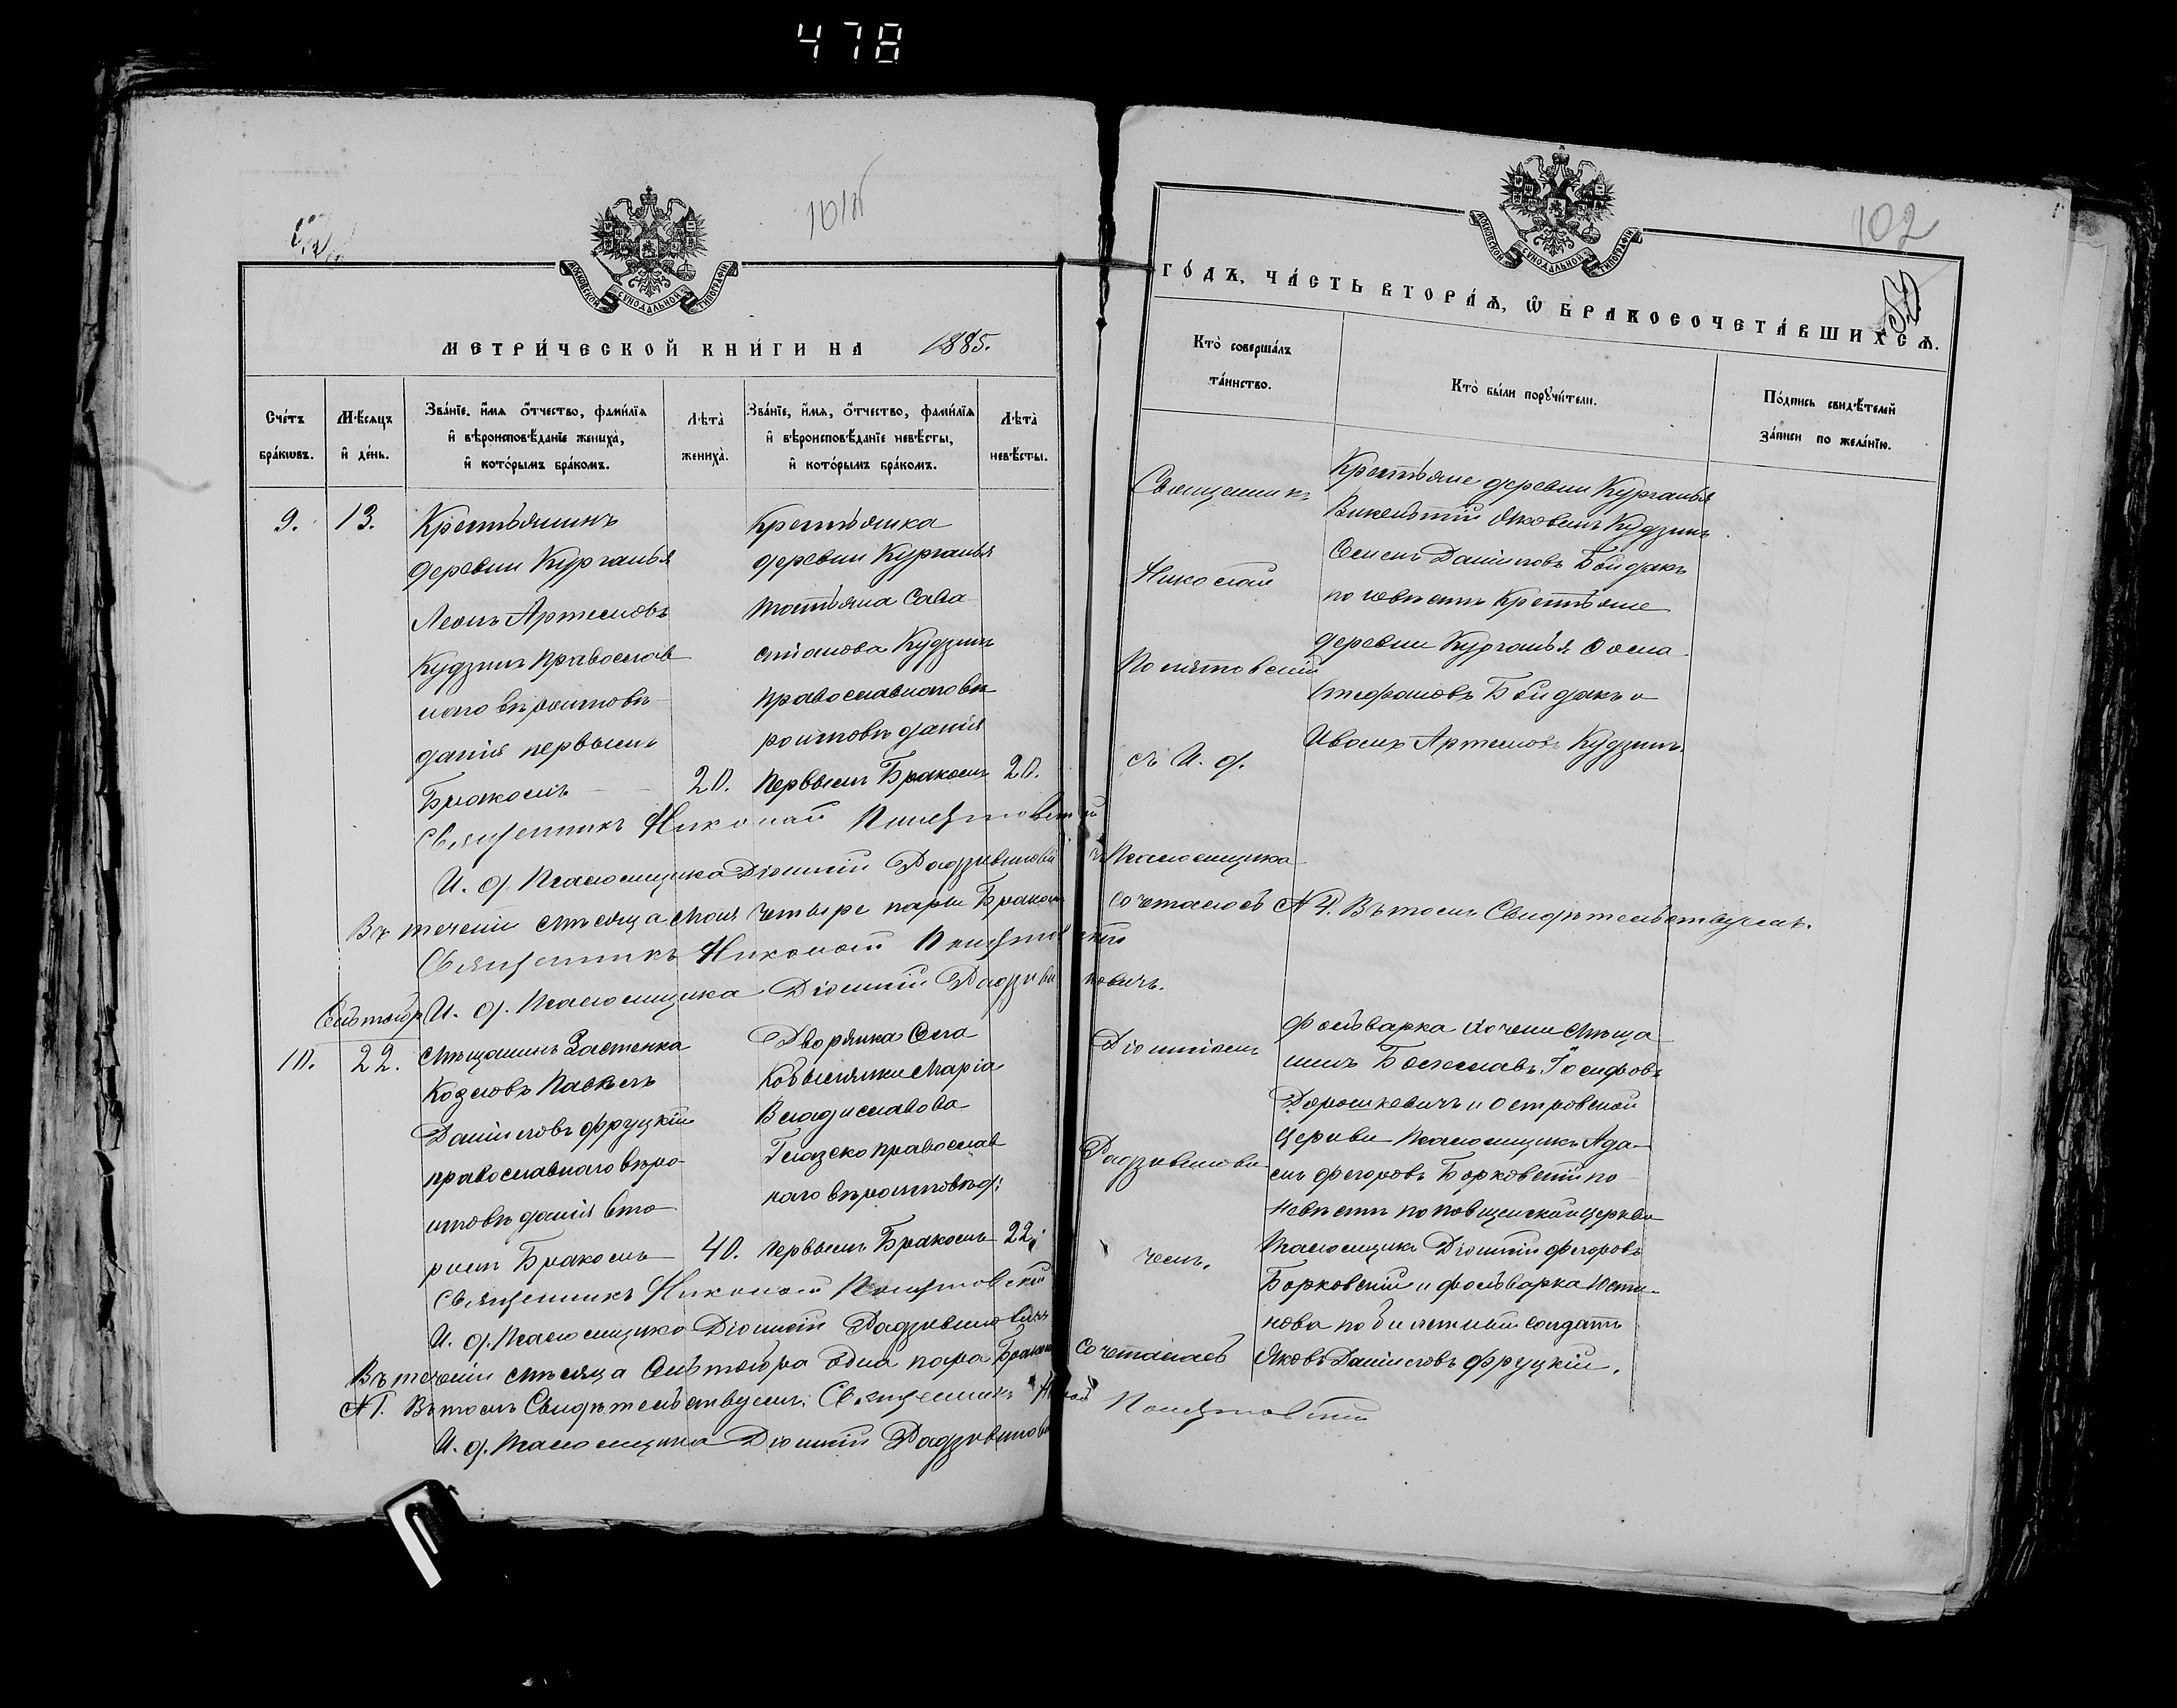 478
101об
102
МОСКОВСКОЙ СѴНОДАЛЬНОЙ ТИПОГРАФІИ
МЕТРИ́ЧЕСКОЙ КНИ́ГИ НА 1885.
Сче́тъ бра́кѡвъ.
Мѣ́сяцъ и҆ де́нь.
Зва́нїе, и҆́мя ѻ҆́тчество, фами́лїя
и҆ вѣроисповѣ́данїе жениха̀,
и҆ кото́рымъ бра́комъ.
Лѣта̀ жениха̀.
Зва́нїе, и҆́мя, ѻ҆́тчество, фами́лїя
и҆ вѣроисповѣ́данїе невѣ́сты,
и҆ кото́рымъ бра́комъ.
Лѣта̀ невѣ́сты.
9. 13.
Крестьянинъ
деревни Курганья
Леонъ Артемовъ
Кудзинъ православ
наго вѣроисповѣ
данія первымъ
Бракомъ
20.
Крестьянка
деревни Курганья
Татьяна Сава
стіанова Кудзинъ
православнаго вѣ
роисповѣданія
первымъ Бракомъ
20.
Священникъ Николай
И. д. Псаломщика Діонисій Радзивиловичъ
Въ теченіи мѣсяца Мая четыре пары Бракомъ
Священникъ Николай
И. д. Псаломщика Діонисій Радзивиловичъ.
Сентябр
10. 22.
Мѣщанинъ Застенка
Козловъ Павелъ
Даниловъ Фруцкій
православнаго вѣро
исповѣданія вто
рымъ Бракомъ
40.
Дворянка
Марія
Владиславова
православ
наго вѣроисповѣд:
первымъ Бракомъ
22.
Священникъ Николай
И. д. Псаломщика Діонисій Радзивиловичъ
Въ теченіи мѣсяца Сентября одна пара Бракомъ
№ 1. Въ томъ Свидѣтельствуемъ: Священникъ
И. д. Псаломщика Діонисій
МОСКОВСКОЙ СѴНОДАЛЬНОЙ ТИПОГРАФІИ
ГО́ДЪ, ЧА́СТЬ ВТОРА́Я, Ѡ҆ БРАКОСОЧЕТА́ВШИХСЯ.
Кто̀ соверша́лъ
та́инство.
Кто̀ бы́ли порꙋчи́тели.
По́дпись свидѣ́телей
за́писи по жела́нїю.
Священникъ
Николай
съ И. д.
Псаломщика
Крестьяне деревни Курганья
Викентій Яковлевъ Кудзинъ
Семенъ Даниловъ Бойдакъ
по невѣстѣ Крестьяне
деревни Курганья Фома
Стефановъ Бойдакъ и
Иванъ Артемовъ Кудзинъ.
сочеталось № 4. Въ томъ Свидѣтельствуемъ.
Діонисіемъ
Радзивилови
чемъ.
фольварка мѣща
нинъ Болеславъ Іосифовъ
Дорошкевичъ и Островской
Церкви Псаломщикъ Ада
мъ Федоровъ Борковскій по
невѣстѣ церкви
Псаломщикъ Діонисій Федоровъ
Борковскій и фольварка Юсти
нова по билетный солдатъ
Яковъ Даниловъ Фруцкій.
сочеталась